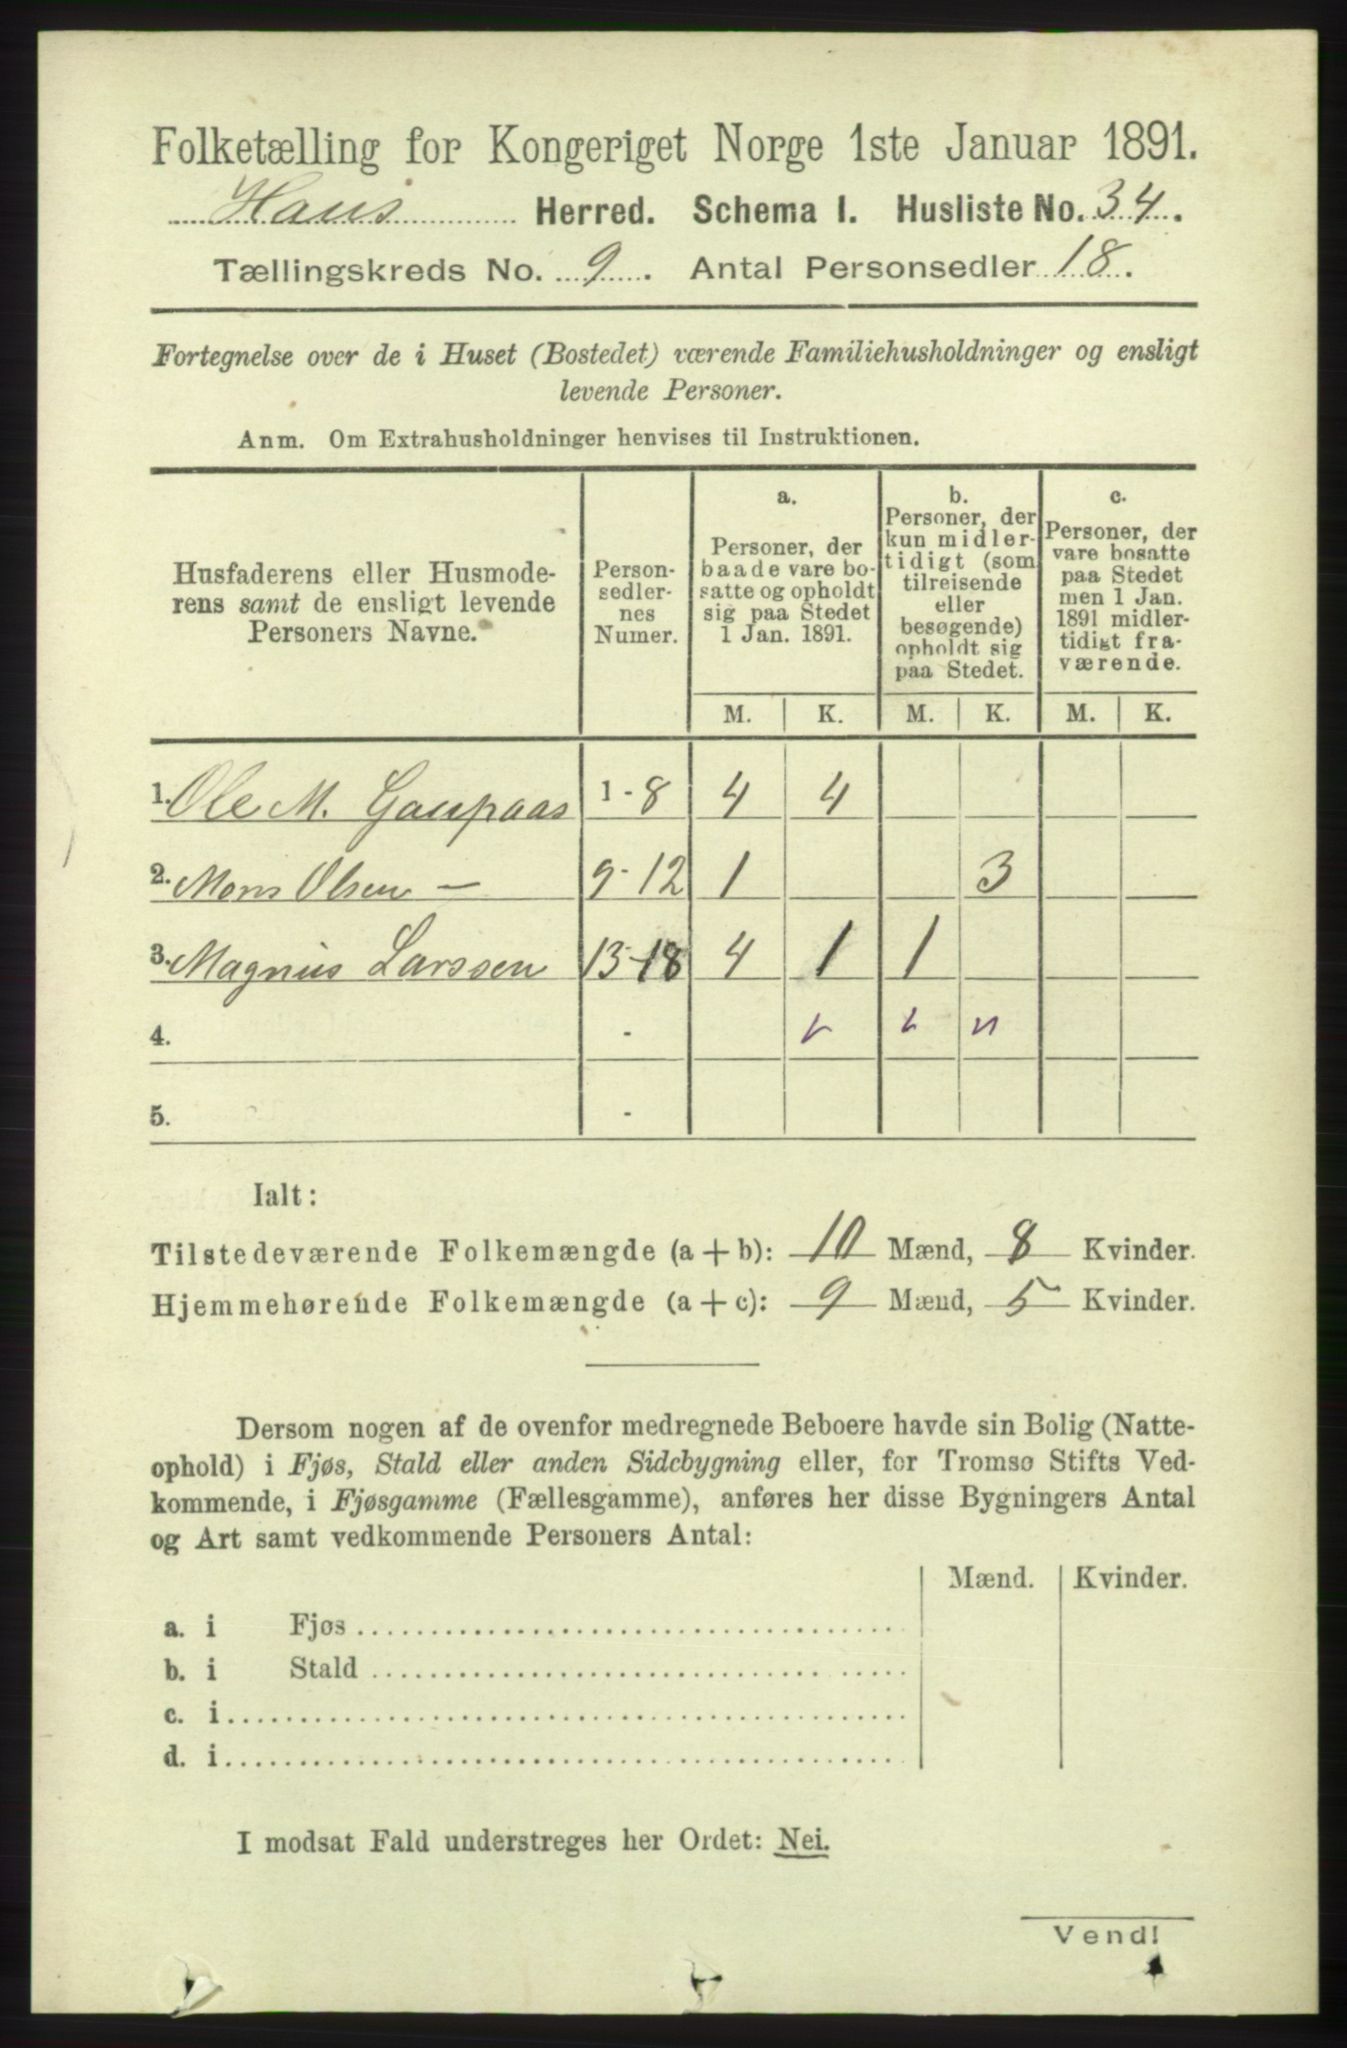 Folketælling for Kongeriget Norge 1ste Januar 1891.
Haus Herred. Schema I. Husliste No. 34.
Tællingskreds No. 9. Antal Personsedler 18.
Fortegnelse over de i Huset (Bostedet) værende Familiehusholdninger og ensligt
levende Personer.
Anm. Om Extrahusholdninger henvises til Instruktionen.
Husfaderens eller Husmode-
rens samt de ensligt levende
Personers Navne.
Person-
sedler-
nes
Numer.
a.
Personer, der
baade vare bo-
satte og opholdt
sig paa Stedet
1 Jan. 1891.
b.
Personer, der
kun midler-
tidigt (som
tilreisende
eller
besøgende)
opholdt sig
paa Stedet.
c.
Personer, der
vare bosatte
paa Stedet
men 1 Jan.
1891 midler-
tidigt fra-
værende.
M. K. M. K. M. K.
1. Ole M. Gaupaas 1-8 4 4
2. Mons Olsen — 9-12 1 3
3. Magnus Larssen 13-18 4 1 1
4. -
5. -
Ialt:
Tilstedeværende Folkemængde (a + b): 10 Mænd, 8 Kvinder.
Hjemmehørende Folkemængde (a + c): 9 Mænd, 5 Kvinder.
Dersom nogen af de ovenfor medregnede Beboere havde sin Bolig (Natte-
ophold) i Fjøs, Stald eller anden Sidebygning eller, for Tromsø Stifts Ved-
kommende, i Fjøsgamme (Fællesgamme), anføres her disse Bygningers Antal
og Art samt vedkommende Personers Antal:
Mænd. Kvinder.
a. i Fjøs
b. i Stald
c. i
d. i
I modsat Fald understreges her Ordet: Nei.
Vend!